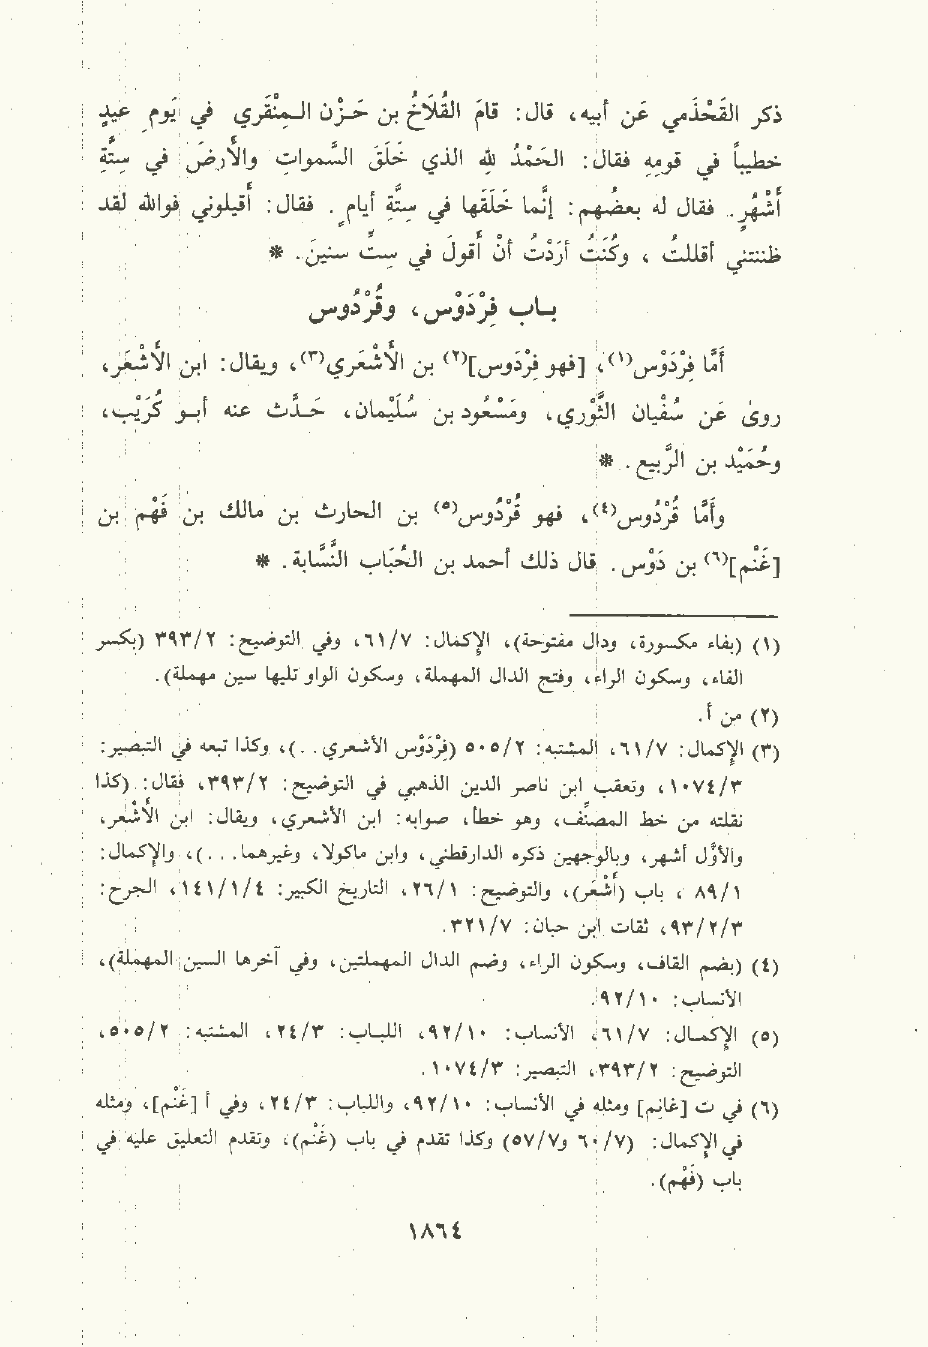 ذكر القَحْذَمي عَن أبيه، قال: قَام القُلَاخُ بن حَـزْن الـمِنْقَري في يَومِ عيدٍ
خطيباً في قومِهِ فقال: الحَمْدُ للهِ الذي خَلَقَ السَّموات والأَرضَ في سِتَّةِ
أَشْهُرٍ. فقال له بعضُهم: إنَّما خَلَقَها في سِتَّةِ أيامٍ. فقال: أَقيلوني فوالله لقد
ظننتني أقللتُ، وكُنَتُ أَرَدْتُ أنْ أَقولَ في سِتِّ سنينَ. *
بــاب فِرْدَوْس، وقُرْدُوس
أَمَّا فِرْدَوْس(١)، [فهو فِرْدَوس](٢) بن الأَشْعَري(٣)، ويقال: ابن الأَشْعَر،
روىٰ عَن سُفْيان الثَّوْري، ومَسْعُود بن سُلَيْمان، حَـدَّث عنه أبـو كُرَيْب،
وحُمَيْد بن الرَّبيع. *
وأَمَّا قُرْدُوس(٤)، فهو قُرْدُوس(٥) بن الحارث بن مالك بن فَهْم بن
[غَنْم](٦) بن دَوْس. قال ذلك أحمد بن الحُبَاب النَّسَّابة. *
(١) (بفاء مكسورة، ودال مفتوحة)، الإكمال: ٦١/٧، وفي التوضيح: ٣٩٣/٢ (بكسر
الفاء، وسكون الراء، وفتح الدال المهملة، وسكون الواو تليها سين مهملة).
(٢) من أ.
(٣) الإكمال: ٦١/٧، المشتبه: ٥٠٥/٢ (فِرْدَوْس الأشعري. .)، وكذا تبعه في التبصير:
١٠٧٤/٣، وتعقب ابن ناصر الدين الذهبي في التوضيح: ٣٩٣/٢، فقال: (كذا
نقلته من خط المصنِّف، وهو خطأ، صوابه: ابن الأشعري، ويقال: ابن الأَشْعر،
والأوَّل أشهر، وبالوجهين ذكره الدارقطني، وابن ماكولا، وغيرهما. . .)، والإكمال:
٨٩/١ ، باب (أَشْعَر)، والتوضيح: ٢٦/١، التاريخ الكبير: ١٤١/١/٤، الجرح:
٩٣/٢/٣، ثقات ابن حبان: ٣٢١/٧.
(٤) (بضم القاف، وسكون الراء، وضم الدال المهملتين، وفي آخرها السين المهملة)،
الأنساب: ٩٢/١٠.
(٥) الإكمـال: ٦١/٧، الأنساب: ٩٢/١٠، اللبـاب: ٢٤/٣، المشتبه: ٥٠٥/٢،
التوضيح: ٣٩٣/٢، التبصير: ١٠٧٤/٣.
(٦) في ت [غانم] ومثله في الأنساب: ٩٢/١٠، واللباب: ٢٤/٣، وفي أ [غَنْم]، ومثله
في الإكمال: (٦٠/٧ و٥٧/٧) وكذا تقدم في باب (غَنْم)، وتقدم التعليق عليه في
باب (فَهْم).
١٨٦٤